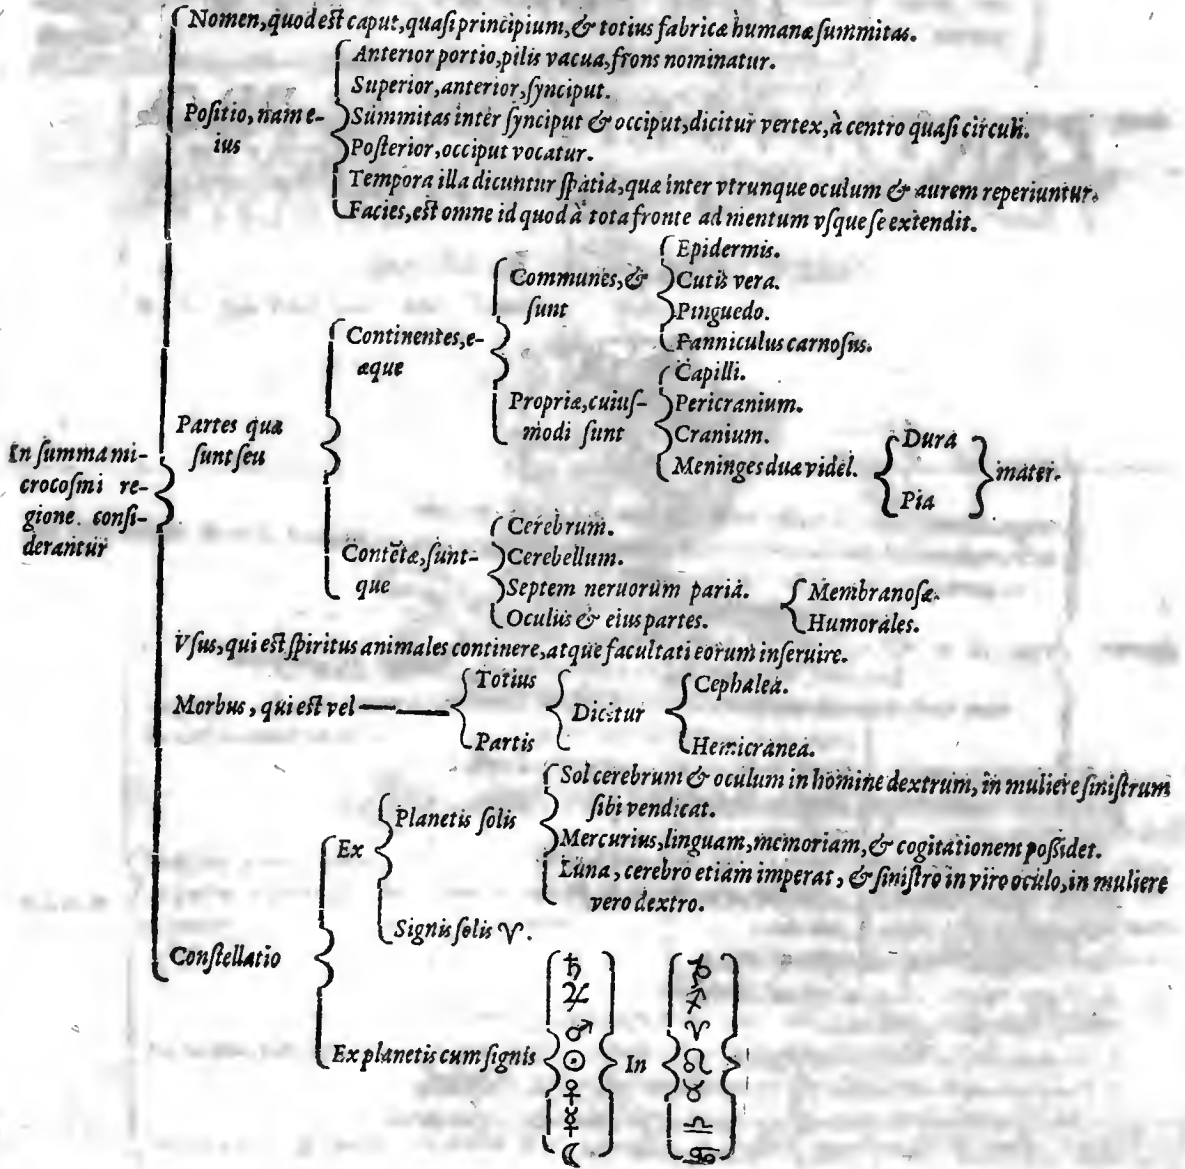 Nomen, quod eſt caput, quaſi principium, & totius fabricæ humanæ ſummitas.
Poſitio, nam e-
ius
Anterior portio, pilis vacua, frons nominatur.
Superior, anterior, ſynciput.
Summitas inter ſynciput & occiput, dicitur vertex, à centro quaſi circuli.
Poſterior, occiput vocatur.
Tempora illa dicuntur ſpatia, quæ inter vtrunque oculum & aurem reperiuntur.
Facies, eſt omne id quod à tota fronte ad mentum vſque ſe extendit.
In ſumma mi-
crocoſmi re-
gione conſi-
derantur
Partes quæ
ſunt ſeu
Continentes, e-
æque
Communes, &
ſunt
Epidermis.
Cutis vera.
Pinguedo.
Panniculus carnoſus.
Propriæ, cuiuſ-
modi ſunt
Capilli.
Pericranium.
Cranium.
Meninges duæ videl.
Dura
Pia
mater.
Contētæ, ſunt-
que
Cerebrum.
Cerebellum.
Septem neruorum paria.
Oculus & eius partes.
Membranoſæ.
Humorales.
Vſus, qui eſt ſpiritus animales continere, atque facultati eorum inſeruire.
Morbus, qui eſt vel
Totius
Partis
Dicitur
Cephalea.
Hemicranea.
Conſtellatio
Ex
Planetis ſolis
Sol cerebrum & oculum in homine dextrum, in muliere ſiniſtrum
ſibi vendicat.
Mercurius, linguam, memoriam, & cogitationem poſſidet.
Luna, cerebro etiam imperat, & ſiniſtro in viro oculo, in muliere
vero dextro.
Signis ſolis ♈.
Ex planetis cum ſignis
♄
♃
♂
☉
♀
☿
☾
In
♑
♐
♈
♌
♉
♎
♋